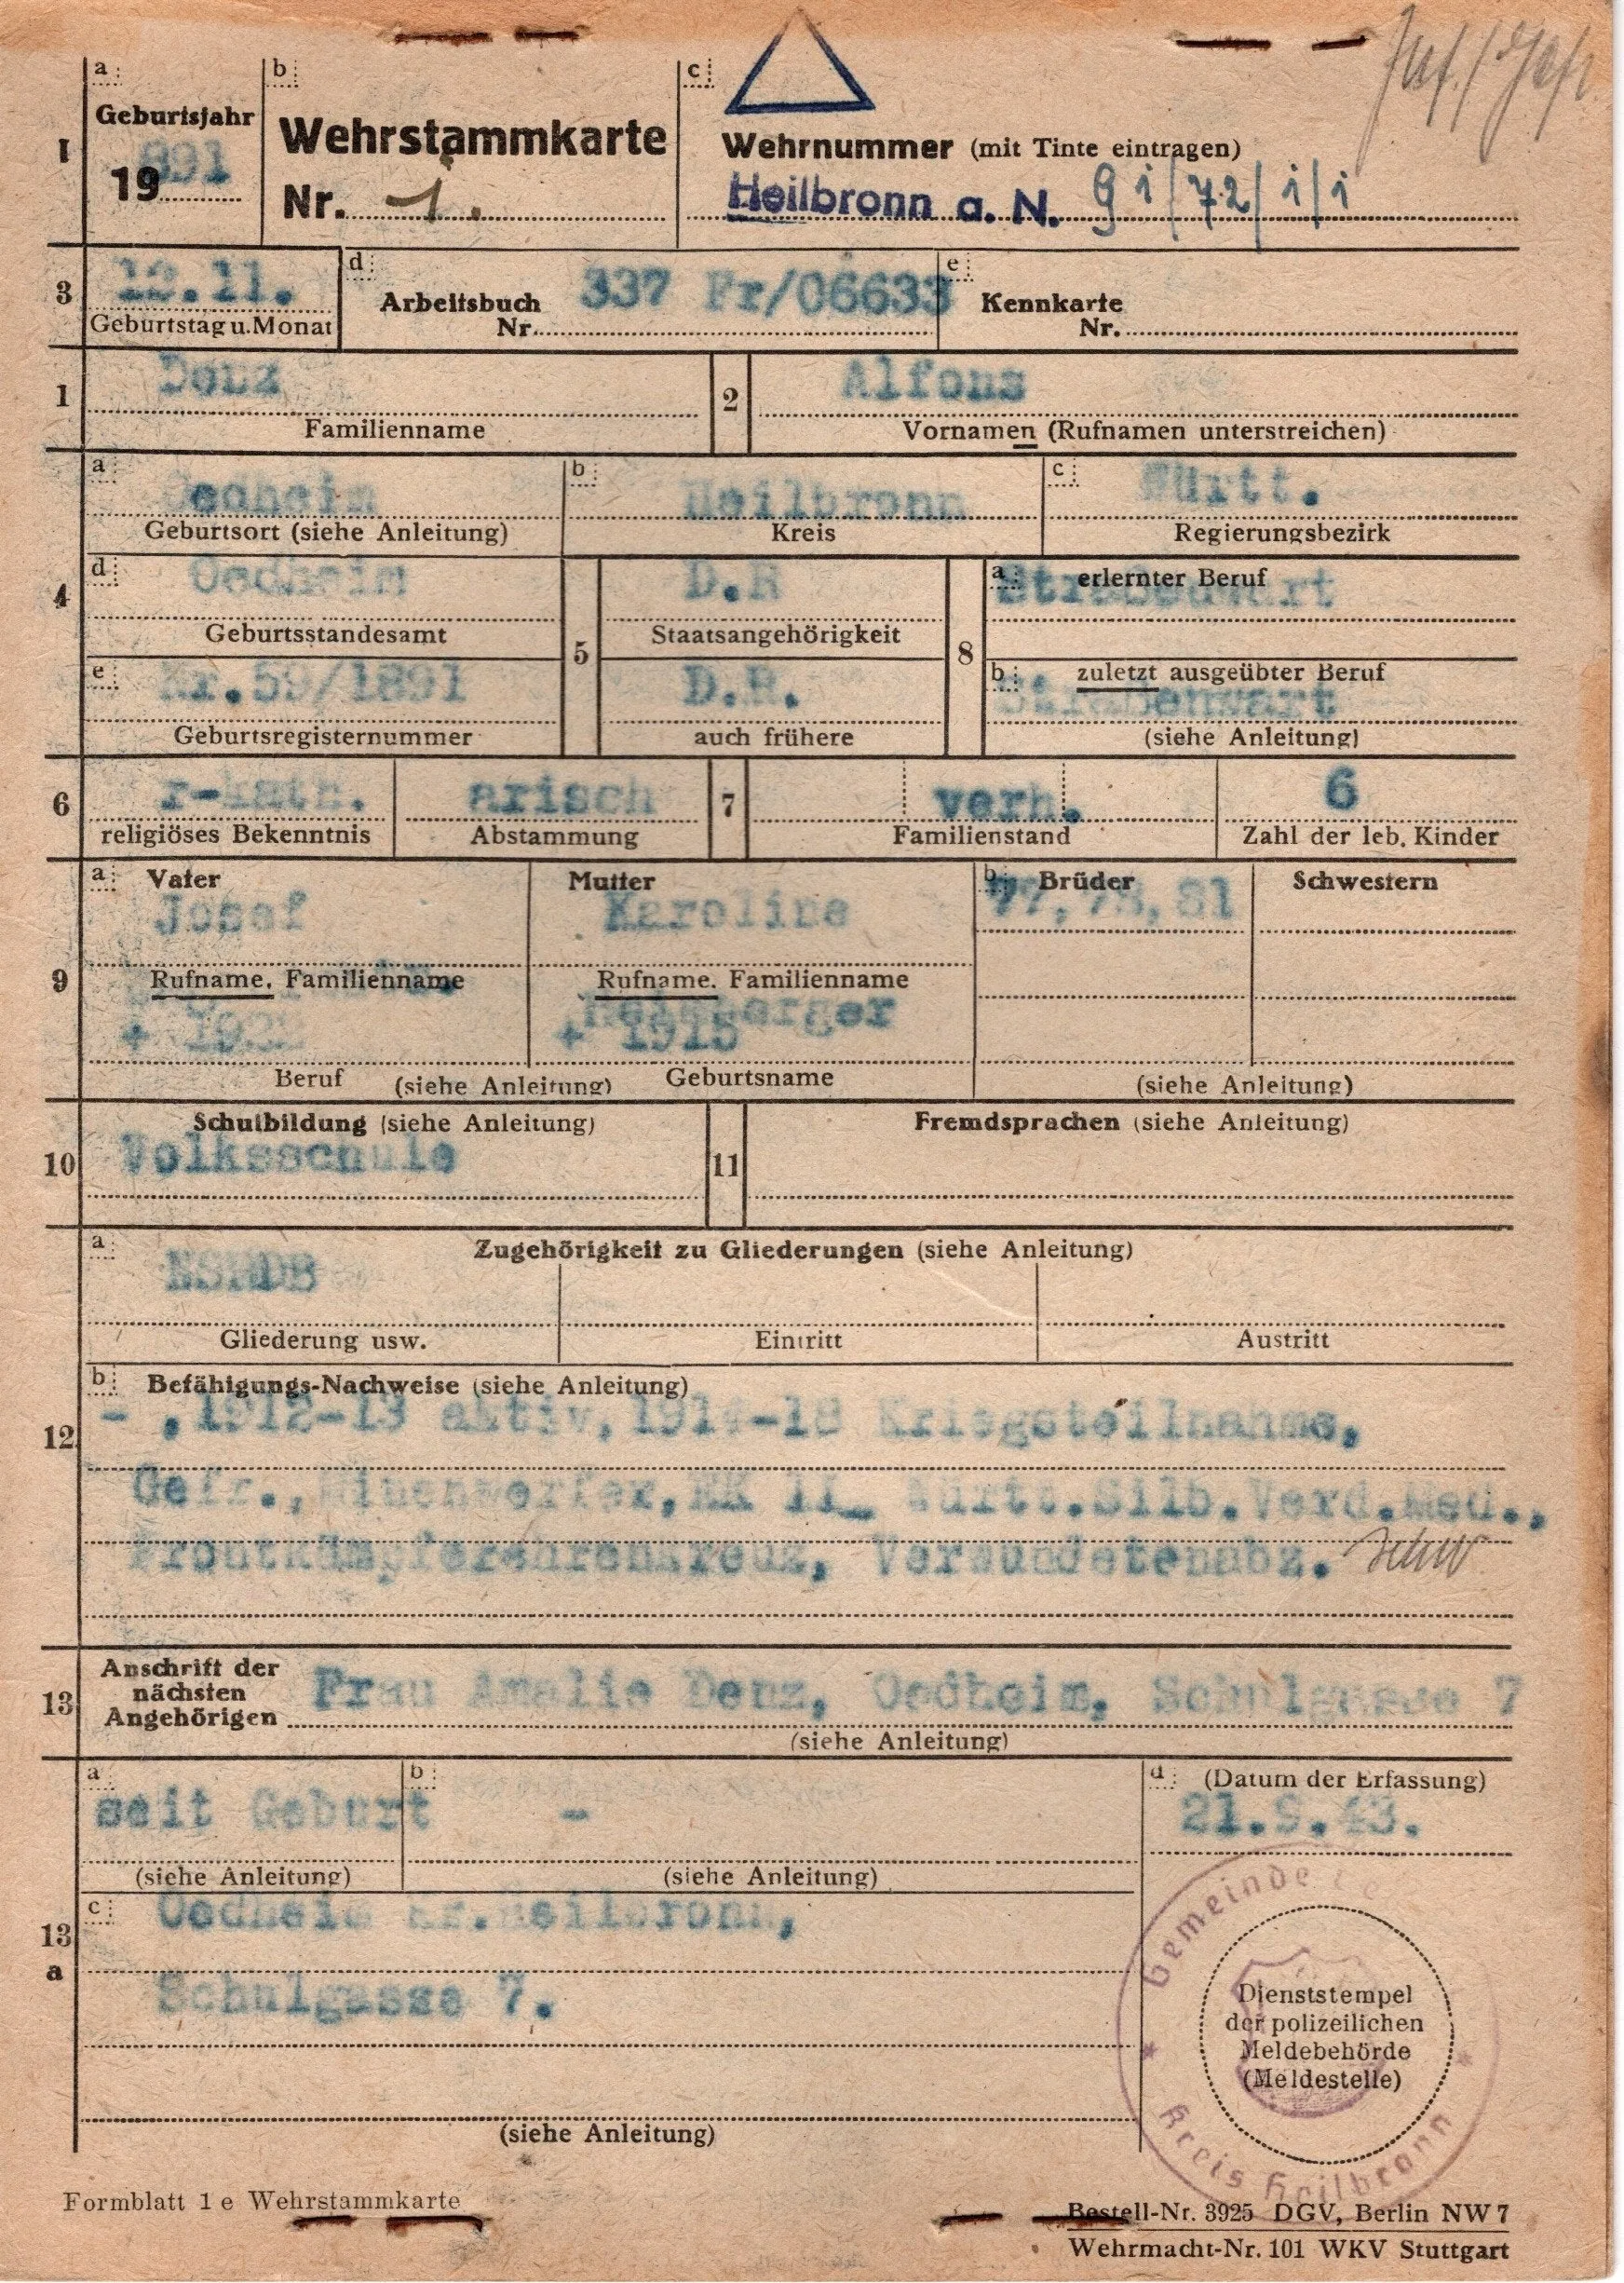 a
Geburtsjahr
I
19 891
b
Wehrstammkarte
Nr. 1.
c
Wehrnummer (mit Tinte eintragen)
Heilbronn a. N. 91/72/1/1
3
12.11.
Geburtstag u. Monat
d
Arbeitsbuch 337 Fr/06633
Nr.
e
Kennkarte
Nr.
1
Denz
Familienname
2
Alfons
Vornamen (Rufnamen unterstreichen)
4
a
Oedheim
Geburtsort (siehe Anleitung)
b
Heilbronn
Kreis
c
Württ.
Regierungsbezirk
d
Oedheim
Geburtsstandesamt
e
Nr.59/1891
Geburtsregisternummer
5
D.R
Staatsangehörigkeit
D.R.
auch frühere
8
a
erlernter Beruf
Straßenwart
b
zuletzt ausgeübter Beruf
Straßenwart
(siehe Anleitung)
6
r-kath.
religiöses Bekenntnis
arisch
Abstammung
7
verh.
Familienstand
6
Zahl der leb. Kinder
9
a
Vater
Josef
Rufname, Familienname
+
Beruf
Mutter
Karoline
Rufname, Familienname
+ 1915
Geburtsname
(siehe Anleitung)
b
Brüder
77,78,81
Schwestern
(siehe Anleitung)
10
Schulbildung (siehe Anleitung)
Volksschule
11
Fremdsprachen (siehe Anleitung)
12
a
Zugehörigkeit zu Gliederungen (siehe Anleitung)
Gliederung usw.
Eintritt
Austritt
b
Befähigungs-Nachweise (siehe Anleitung)
- ,1912-13 aktiv,1914-18 Kriegsteilnahme,
Gefr., Minenwerfer,EK II_ Württ.Silb.Verd.Med.,
Frontkämpferehrenkreuz, Verwundetenabz.
13
Anschrift der
nächsten
Angehörigen
Frau Amalie Denz, Oedheim, Schulgasse 7
(siehe Anleitung)
13
a
a
seit Geburt
(siehe Anleitung)
b
-
(siehe Anleitung)
d
(Datum der Erfassung)
21.9.43.
c
Oedheim Kr.Heilbronn,
Schulgasse 7.
(siehe Anleitung)
Gemeinde
Kreis Heilbronn
Dienststempel
der polizeilichen
Meldebehörde
(Meldestelle)
Formblatt 1 e Wehrstammkarte
Bestell-Nr. 3925 DGV, Berlin NW 7
Wehrmacht-Nr. 101 WKV Stuttgart